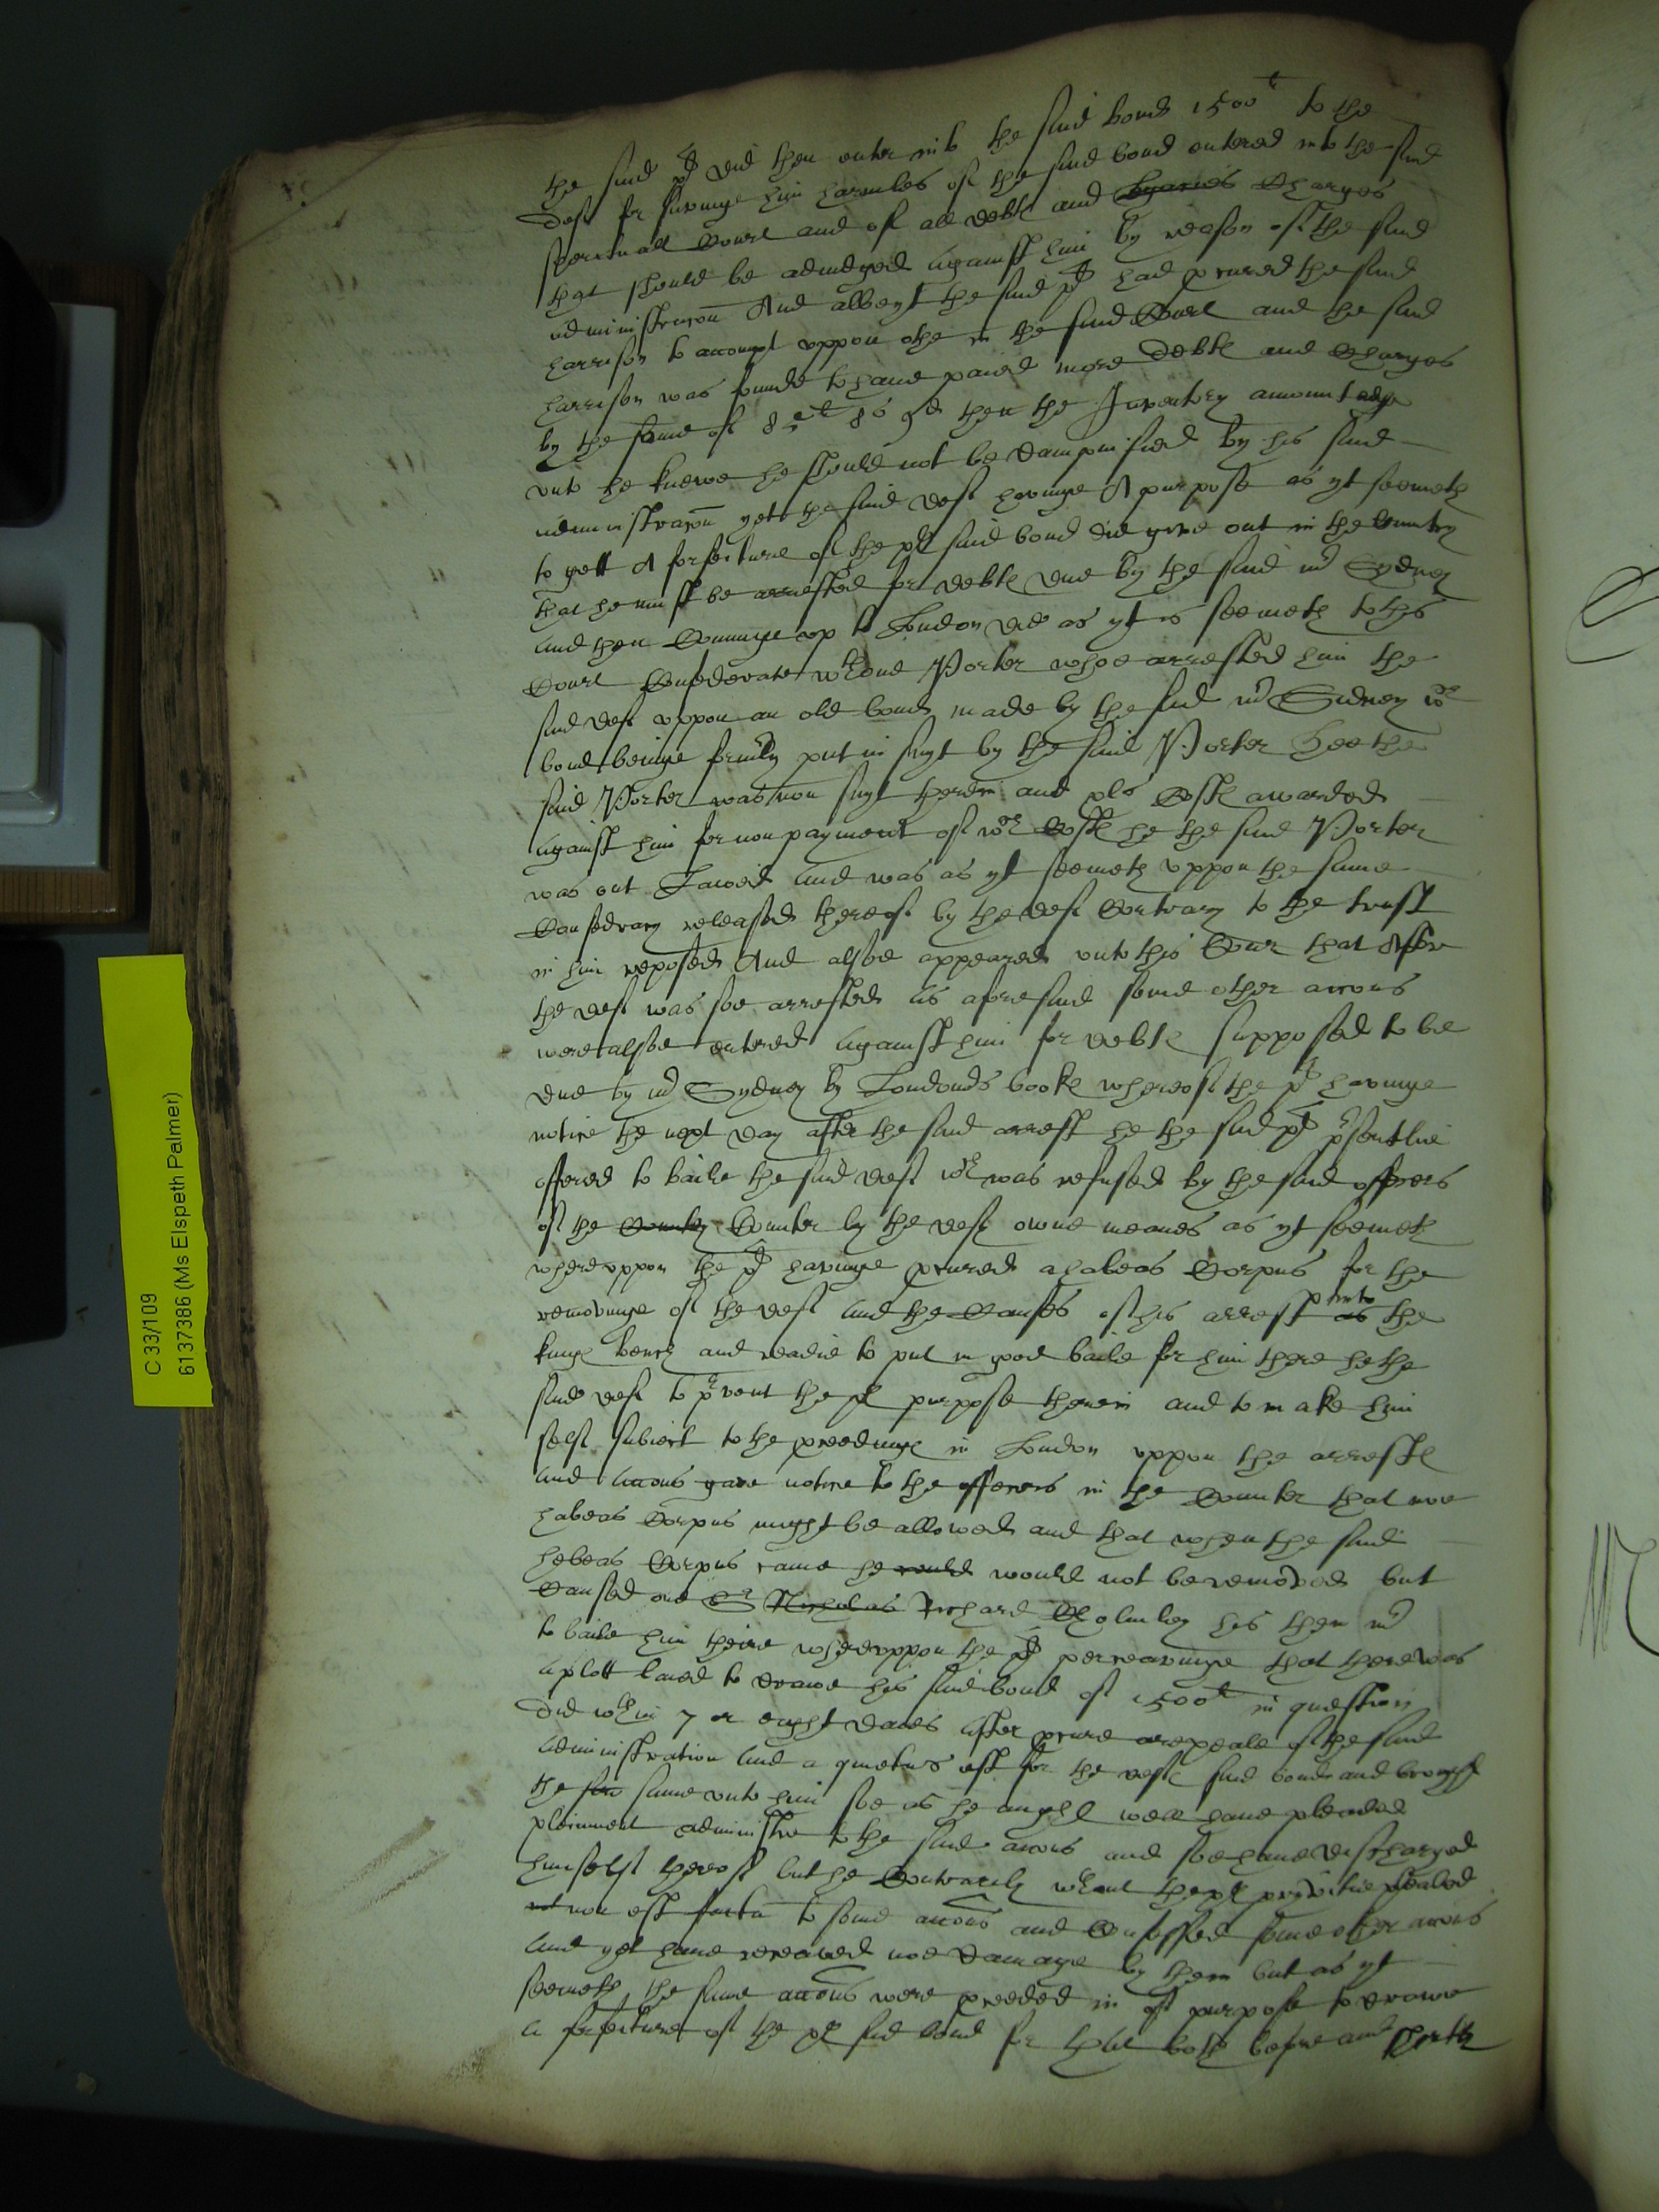 the said plt did then enter into the said bond 1500li to the
Deft for saveinge him harmeles of the said bond entered into the said
spirituall Court and of all debtes and charges Charges
that should be adiudged against him by reason of the said
administracon And albeyt the said plt had procured the said
harrison to accompt uppon othe in the said Court and the said
harrison was founde to have paied more Debtes and Charges
by the some of 8s 9d then the Inventory amounted
unto he knewe he should not be dampnified by his said
administracon yet the said deft havinge A purpose as yt seemeth
to gett A forfeiture of the plts said bond did give out in the Country
that he must be arrested for debtes due by the said mr Sydney
and then Cominge up to London did as yt is seemeth to this
Court Confederate wth one Porter whoe arrested him the
said deft uppon an old bond made by the said mr Sidney wch
bond beinge formerly put in suyt by the said Porter hee the
said Porter was non suyt therein and Costes awarded
against him for non payment of wch Costes he the said Porter
was out Lawed and was as yt seemeth uppon the same
Confedracy released thereof by the deft Contrary to the trust
in him reposed And alsoe appeared unto this Court that After
the deft was soe arrested as aforesaid some other accons
were alsoe entered against him for debtes supposed to be
due by mr Sydney by booke whereof the plt havinge
notice the next day after the said arrest he the said plt presentlie
offered to baile the said deft wch was refused by the said officers
of the County Counter by the defts owne meanes as yt seemeth
whereuppon the plt havinge procured a habeas Corpus for the
removinge of the deft and the Causes of his arrest as the
kings bench and readie to put in good baile for him there he the
said deft to prevent the plts purpose therein and to make him
self subiect to the proceedinges in London uppon the arrestes
and accons gave notice to the officers in the Counter that noe
habeas Corpus might be allowed and that when the said
hebeas Corpus came he could would not be removed but
Caused one Sr Nicholas Richard Cholmley his then mr
to baile him theire whereuppon the plt perceavinge that there was
a plott laied to drawe his said bond of 1500li in question
Did wthin 7 or eight daies after procure a repeale of the said
administration and a quietus est for the defts said bond and brought
the same unto him soe as he might well have pleaded
administred to the said accons and soe have discharged
himself thereof but he Contrarily wthout the plts privitie pleaded
not non est factu to some accons and Confessed some other accons
and yet have receaved noe damage by them but as yt
seemeth the same accons were proceeded in of purpose to drawe
a forfeiture of the plts said bond for that both before and
C 33/109
6137386 (Ms Elspeth Palmer)